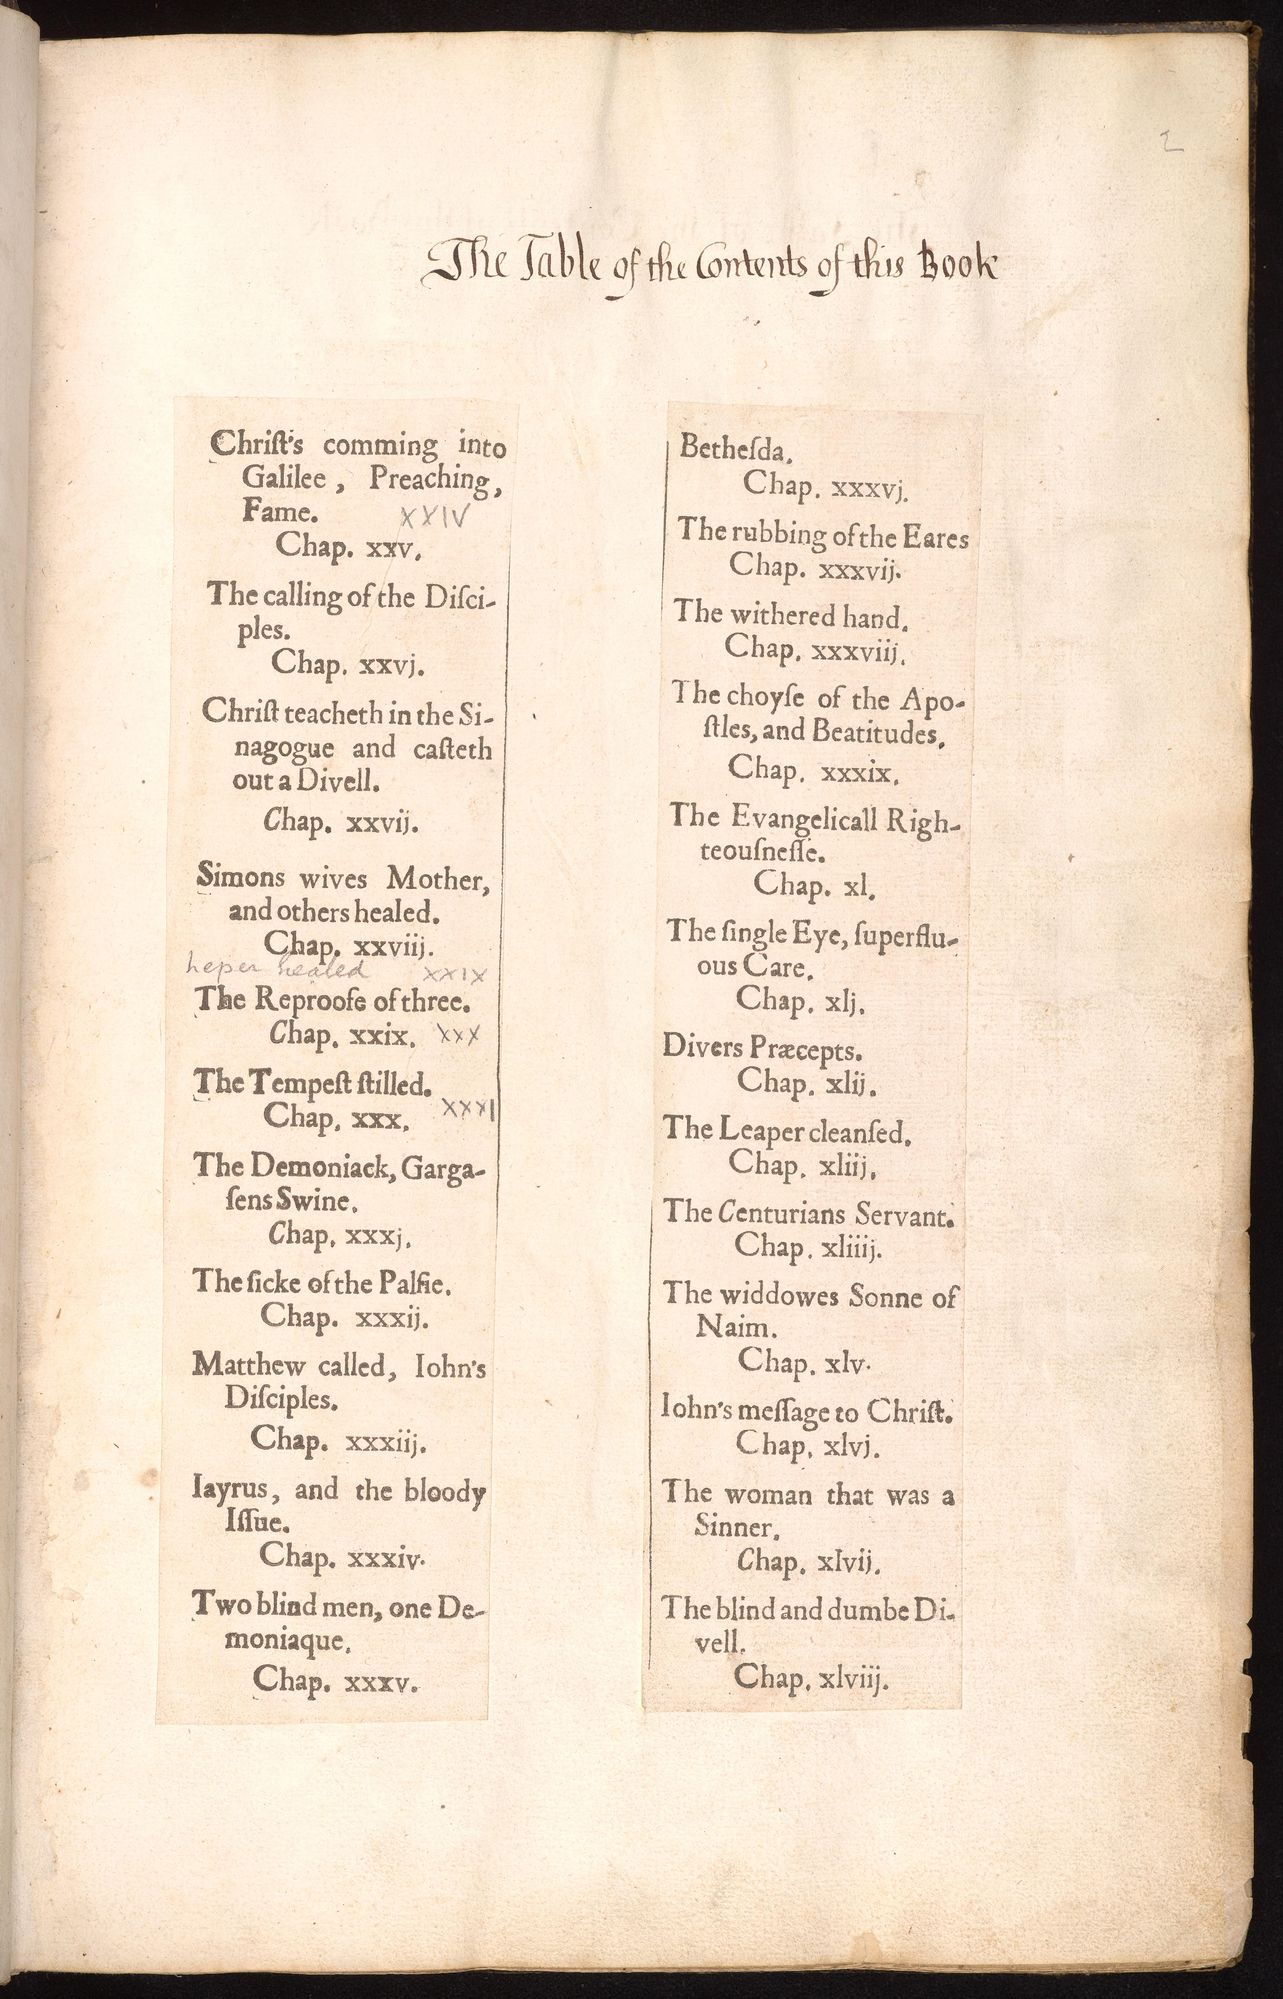 2
The Table of the Contents of this Book
Chriſt's comming into
Galilee, Preaching,
Fame. XXIV
Chap. xxv.
The calling of the Diſci-
ples.
Chap. xxvj.
Chriſt teacheth in the Si-
nagogue and caſteth
out a Divell.
Chap. xxvij.
Simons wives Mother,
and others healed.
Chap. xxviij.
Leper healed XXIX
The Reproofe of three.
Chap. xxix. XXX
The Tempeſt ſtilled.
Chap. xxx. XXXI
The Demoniack, Garga-
ſens Swine.
Chap. xxxj.
The ſicke of the Palſie.
Chap. xxxij.
Matthew called, Iohn's
Diſciples.
Chap. xxxiij.
Iayrus, and the bloody
Iſſue.
Chap. xxxiv.
Two blind men, one De-
moniaque.
Chap. xxxv.
Betheſda.
Chap. xxxvj.
The rubbing of the Eares
Chap. xxxvij.
The withered hand.
Chap. xxxviij.
The choyſe of the Apo-
ſtles, and Beatitudes.
Chap. xxxix.
The Evangelicall Righ-
teouſneſſe.
Chap. xl.
The ſingle Eye, ſuperflu-
ous Care.
Chap. xlj.
Divers Præcepts.
Chap. xlij.
The Leaper cleanſed.
Chap. xliij.
The Centurians Servant.
Chap. xliiij.
The widdowes Sonne of
Naim.
Chap. xlv.
Iohn's meſſage to Chriſt.
Chap. xlvj.
The woman that was a
Sinner.
Chap. xlvij.
The blind and dumbe Di-
vell.
Chap. xlviij.